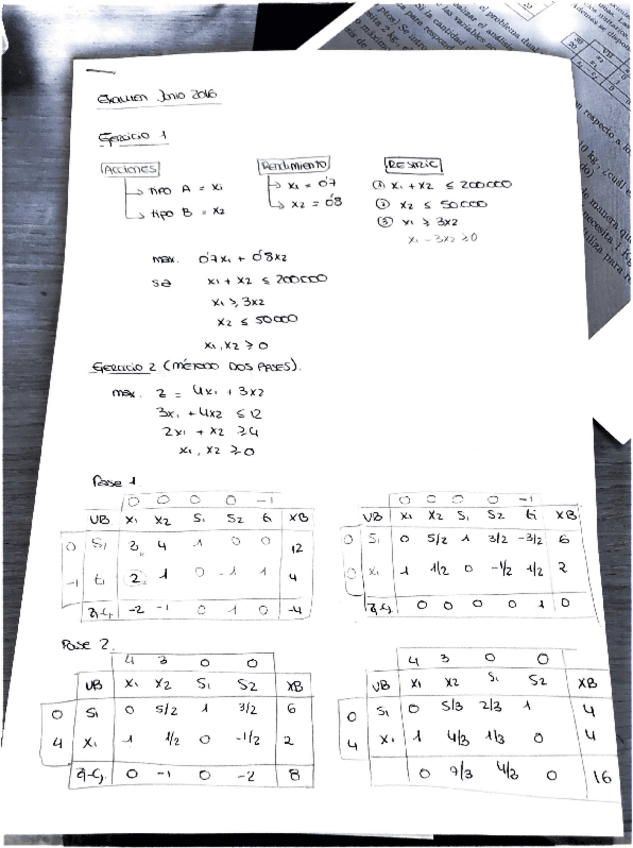 Examen Junio 2016
Ejercicio 1
Acciones
→ tipo A = x1
→ tipo B = x2
Rendimiento
→ x1 = 0'7
→ x2 = 0'8
RESTRIC
① x1 + x2 ≤ 200000
② x2 ≤ 50000
③ x1 ≥ 3x2
x1 - 3x2 ≥ 0
max. 0'7x1 + 0'8x2
sa x1 + x2 ≤ 200000
x1 ≥ 3x2
x2 ≤ 50000
x1, x2 ≥ 0
Ejercicio 2 (MÉTODO DOS FASES).
max. z = 4x1 + 3x2
3x1 + 4x2 ≤ 12
2x1 + x2 ≥ 4
x1, x2 ≥ 0
Fase 1
0 0 0 0 -1
VB x1 x2 S1 S2 t1 XB
0 S1 3 4 1 0 0 12
-1 t1 2 1 0 -1 1 4
zj-cj -2 -1 0 1 0 -4
0 0 0 0 -1
VB x1 x2 S1 S2 t1 XB
0 S1 0 5/2 1 3/2 -3/2 6
0 x1 1 1/2 0 -1/2 1/2 2
zj-cj 0 0 0 0 1 0
Fase 2.
4 3 0 0
VB x1 x2 S1 S2 XB
0 S1 0 5/2 1 3/2 6
4 x1 1 1/2 0 -1/2 2
zj-cj 0 -1 0 -2 8
4 3 0 0
VB x1 x2 S1 S2 XB
0 S1 0 5/3 2/3 1 4
4 x1 1 4/3 1/3 0 4
0 7/3 4/3 0 16